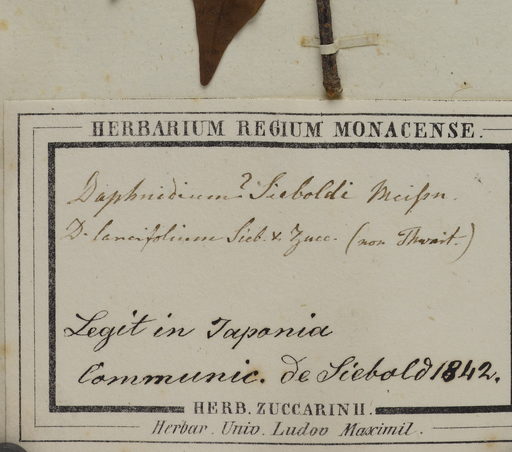 HERBARIUM REGIUM MONACENSE.
Daphnidium? Sieboldi Meißn.
D. lancifolium Sieb. & Zucc. (non Thwait.)
Legit in Japonia
Communic. de Siebold 1842.
HERB. ZUCCARINII.
Herbar. Univ. Ludov Maximil.